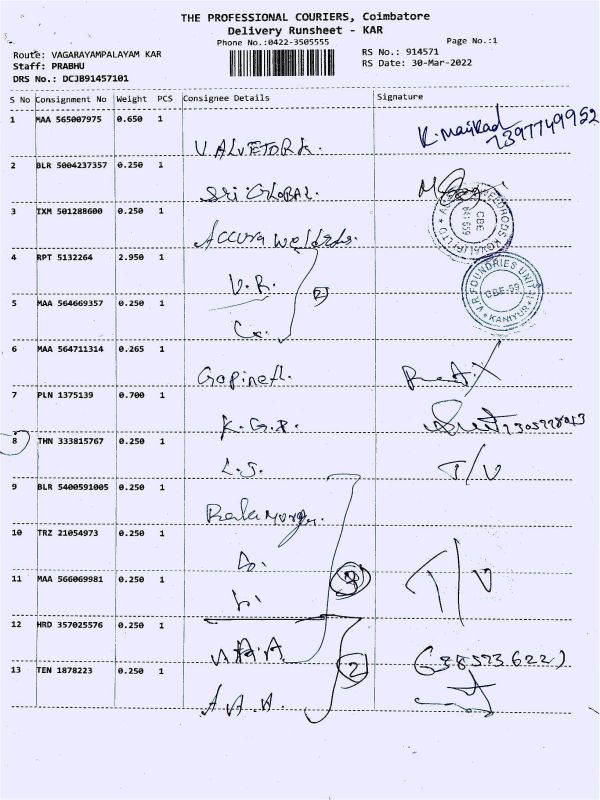 THE PROFESSIONAL COURIERS, Coimbatore
Delivery Runsheet - KAR
Phone No.:0422-3505555
Page No.:1
Route: VAGARAYAMPALAYAM KAR
Staff: PRABHU
DRS No.: DCJB91457101
RS No.: 914571
RS Date: 30-Mar-2022
S No Consignment No Weight PCS Consignee Details Signature
1 MAA 565007975 0.650 1
2 BLR 5004237357 0.250 1
Sri GLOBAL.
3 TXM 501288600 0.250 1
Accura
4 RPT 5132264 2.950 1
V.R.
2
FOUNDRIES UNIT
CBE-59
KANIYUR
5 MAA 564669357 0.250 1
6 MAA 564711314 0.265 1
7 PLN 1375139 0.700 1
K.G.P.
8 THN 333815767 0.250 1
L.S. T/V
9 BLR 5400591005 0.250 1
10 TRZ 21054973 0.250 1
11 MAA 566069981 0.250 1
T/V
12 HRD 357025576 0.250 1
2
13 TEN 1878223 0.250 1
A.A.A.